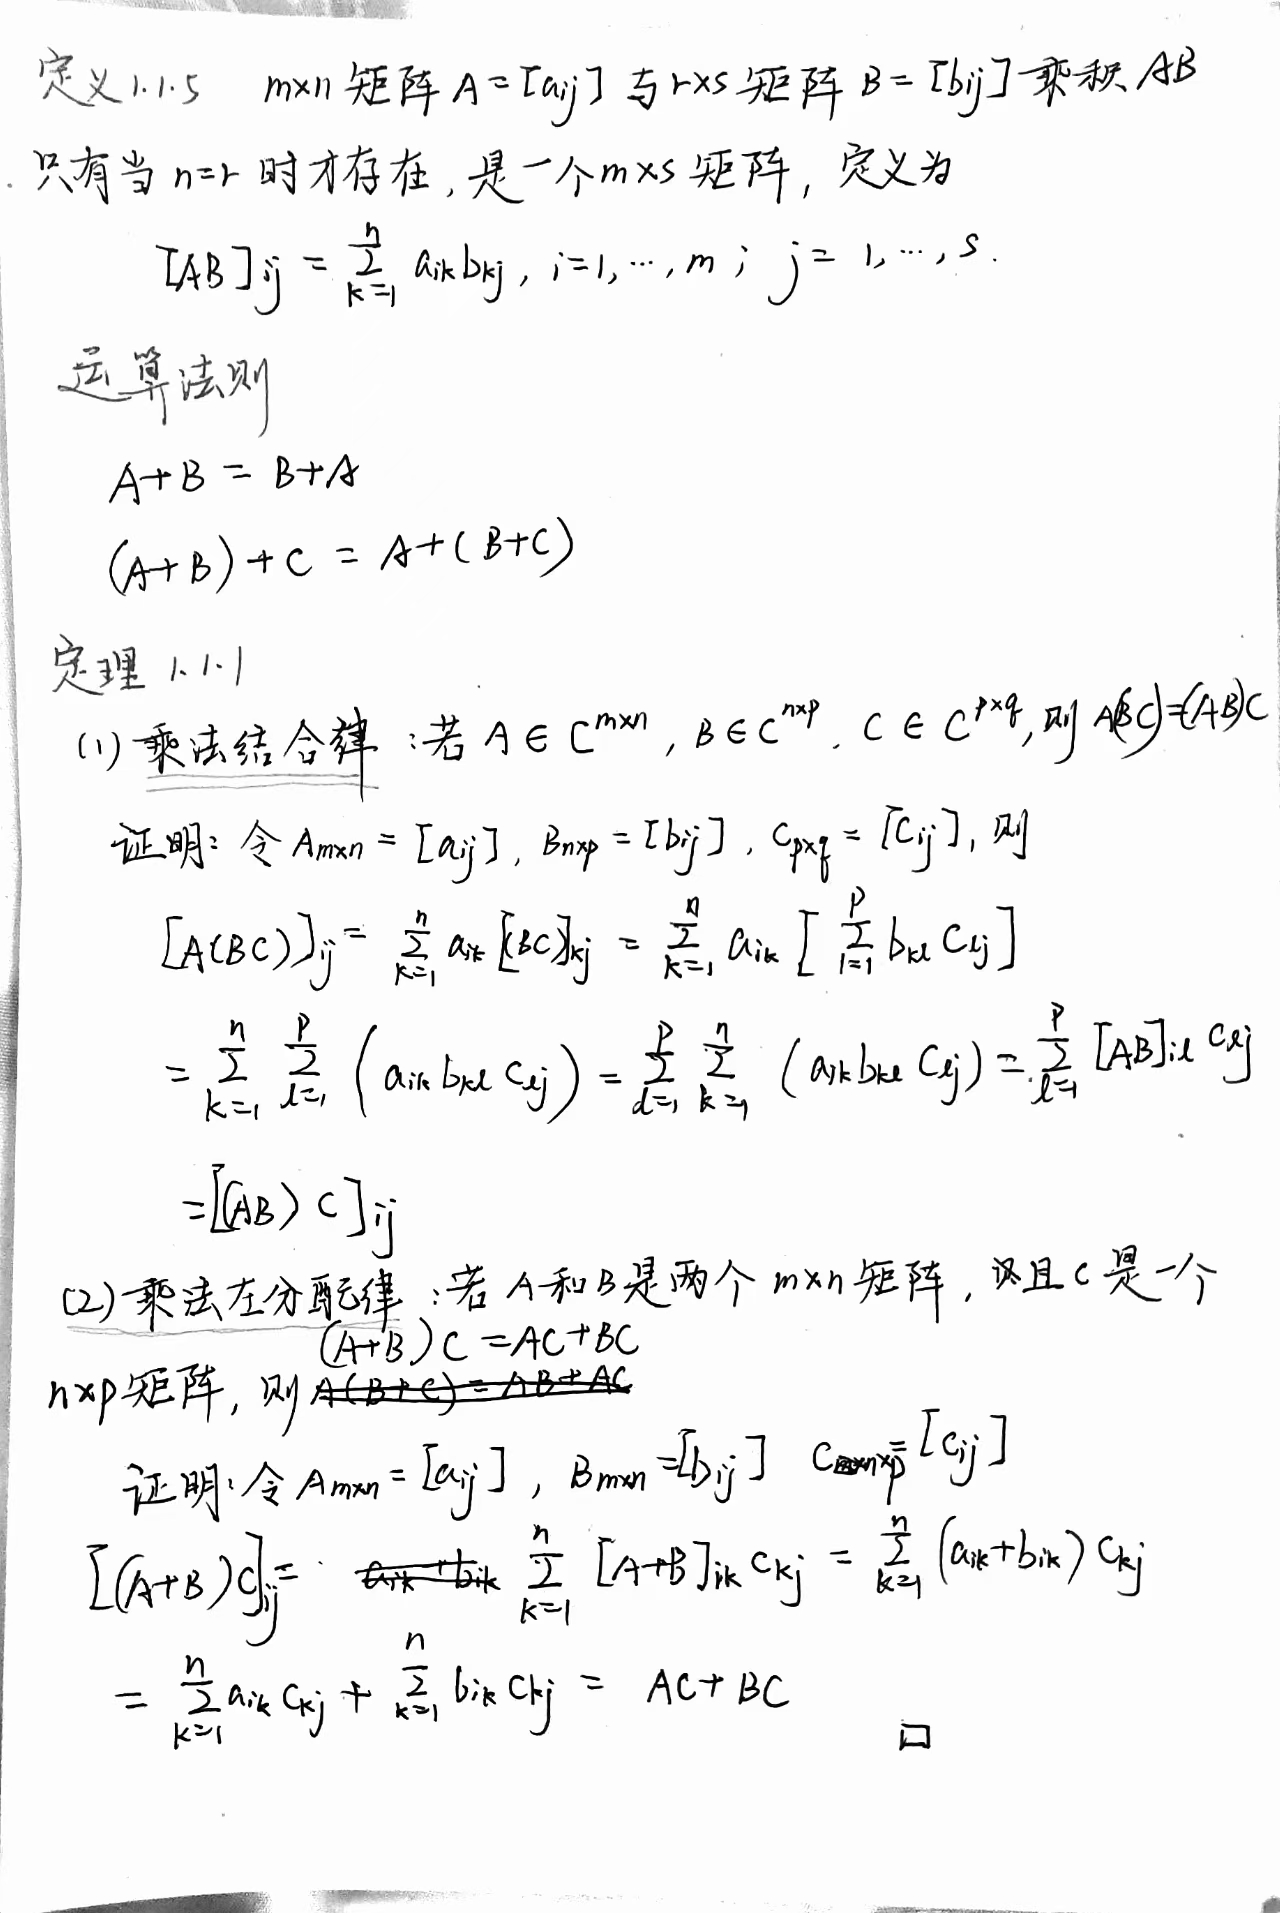 定义1.1.5 m×n矩阵A=[aij]与r×s矩阵B=[bij]乘积AB
只有当n=r时才存在,是一个m×s矩阵,定义为
[AB]ij = ∑_{k=1}^{n} aik bkj, i=1,…,m; j=1,…,s.
运算法则
A+B = B+A
(A+B)+C = A+(B+C)
定理 1.1.1
(1) 乘法结合律:若A∈C^{m×n}, B∈C^{n×p}, C∈C^{p×q},则A(BC)=(AB)C
证明:令Am×n=[aij], Bn×p=[bij], Cp×q=[Cij],则
[A(BC)]ij = ∑_{k=1}^{n} aik [BC]kj = ∑_{k=1}^{n} aik [∑_{l=1}^{p} bkl Clj]
= ∑_{k=1}^{n} ∑_{l=1}^{p} (aik bkl Clj) = ∑_{l=1}^{p} ∑_{k=1}^{n} (aik bkl Clj) = ∑_{l=1}^{p} [AB]il Clj
=[(AB)C]ij
(2) 乘法左分配律:若A和B是两个m×n矩阵,且C是一个
(A+B)C=AC+BC
n×p矩阵,则A(B+C)=AB+AC
证明:令Am×n=[aij], Bm×n=[bij] Cn×p=[cij]
[(A+B)C]ij = aik+bik ∑_{k=1}^{n} [A+B]ik Ckj = ∑_{k=1}^{n} (aik+bik)Ckj
= ∑_{k=1}^{n} aik Ckj + ∑_{k=1}^{n} bik Ckj = AC+BC
□